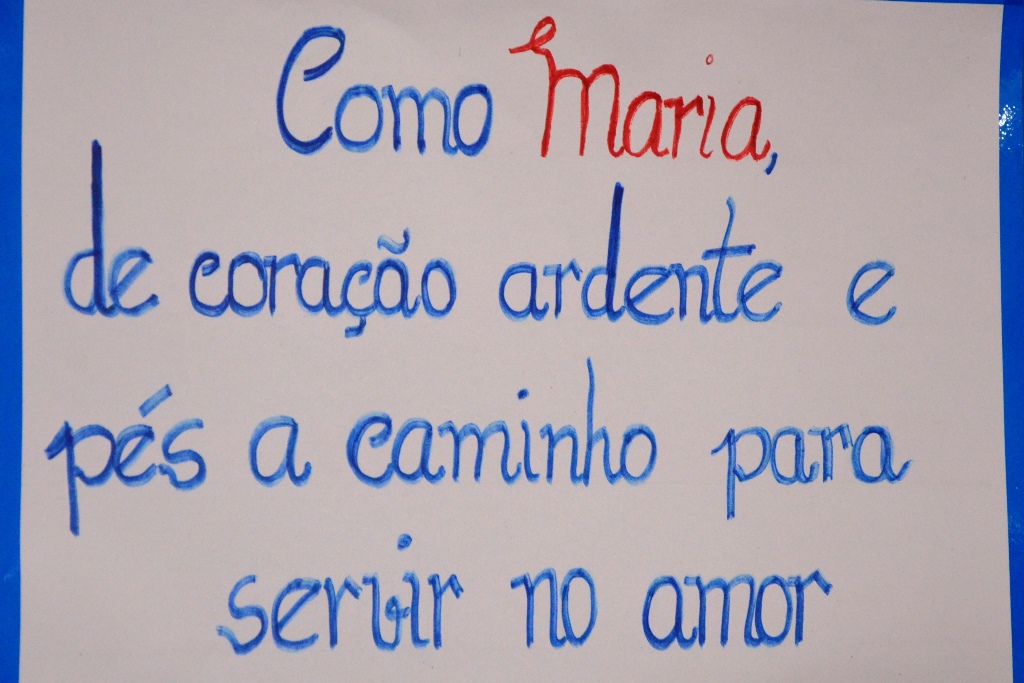 Como Maria,
de coração ardente e
pés a caminho para
servir no amor